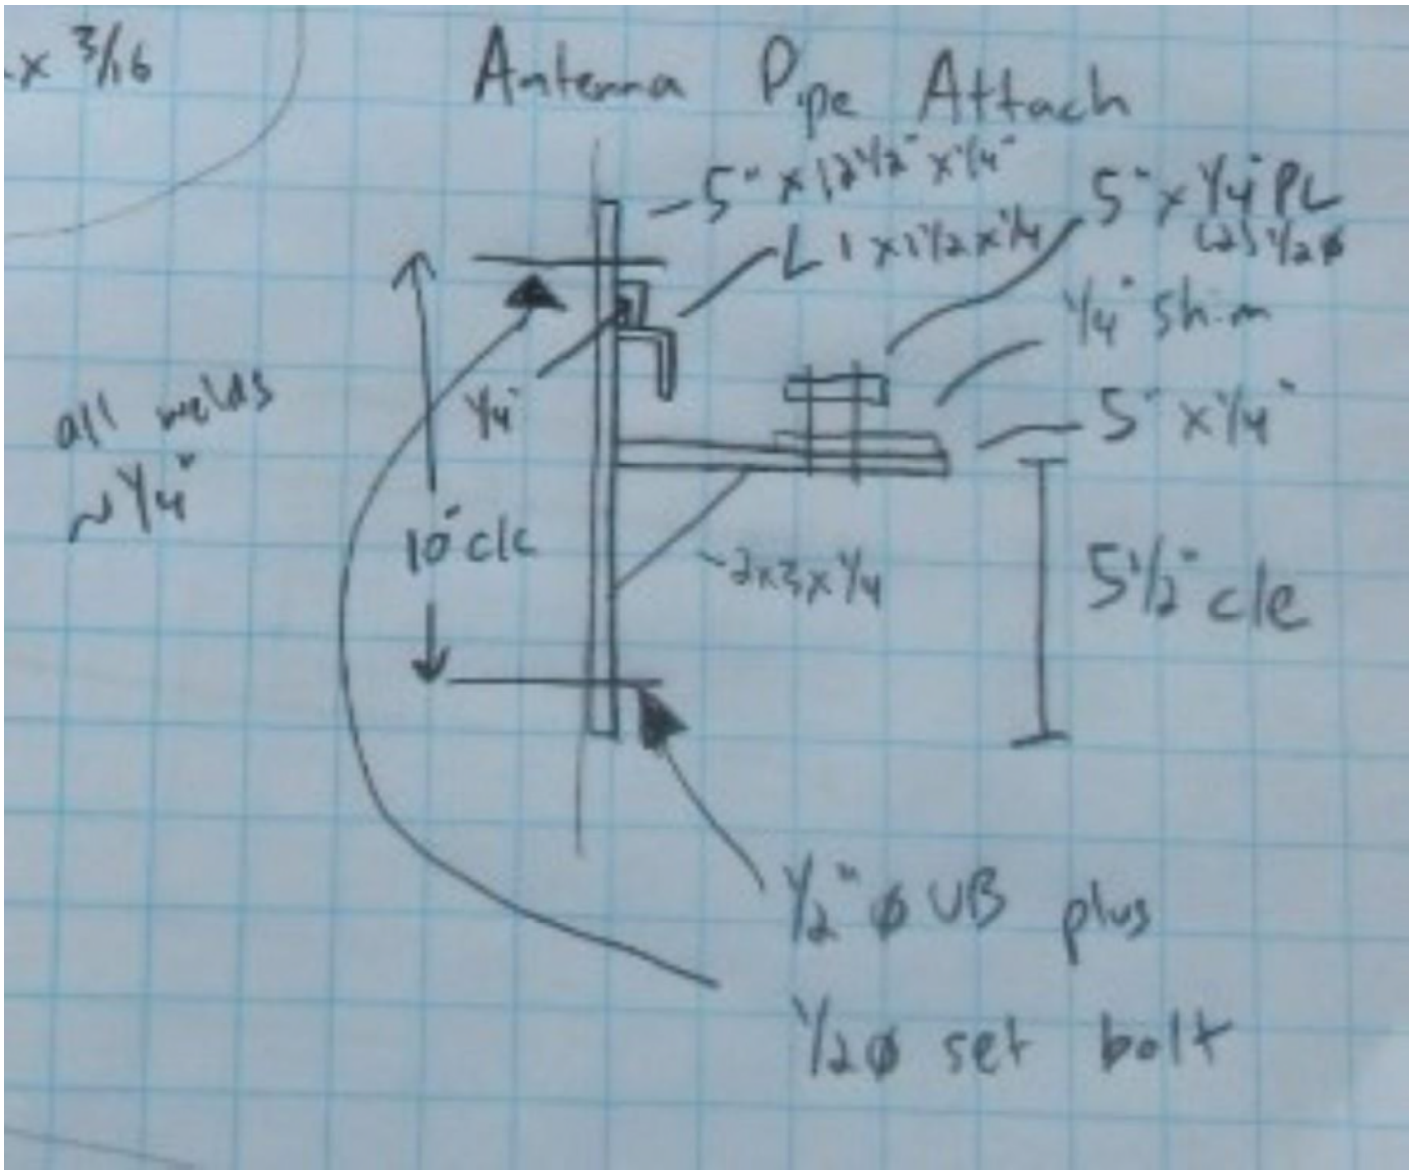 x 3/16
Antenna Pipe Attach
5" x 12 1/2" x 1/4"
L 1 x 1 1/2 x 1/4
5" x 1/4" PL
(2) 1/2 ø
1/4" Shim
5" x 1/4"
all welds
~ 1/4"
1/4"
10" c/c
~2x3x1/4
5 1/2" c/e
1/2" ø UB plus
1/2 ø set bolt